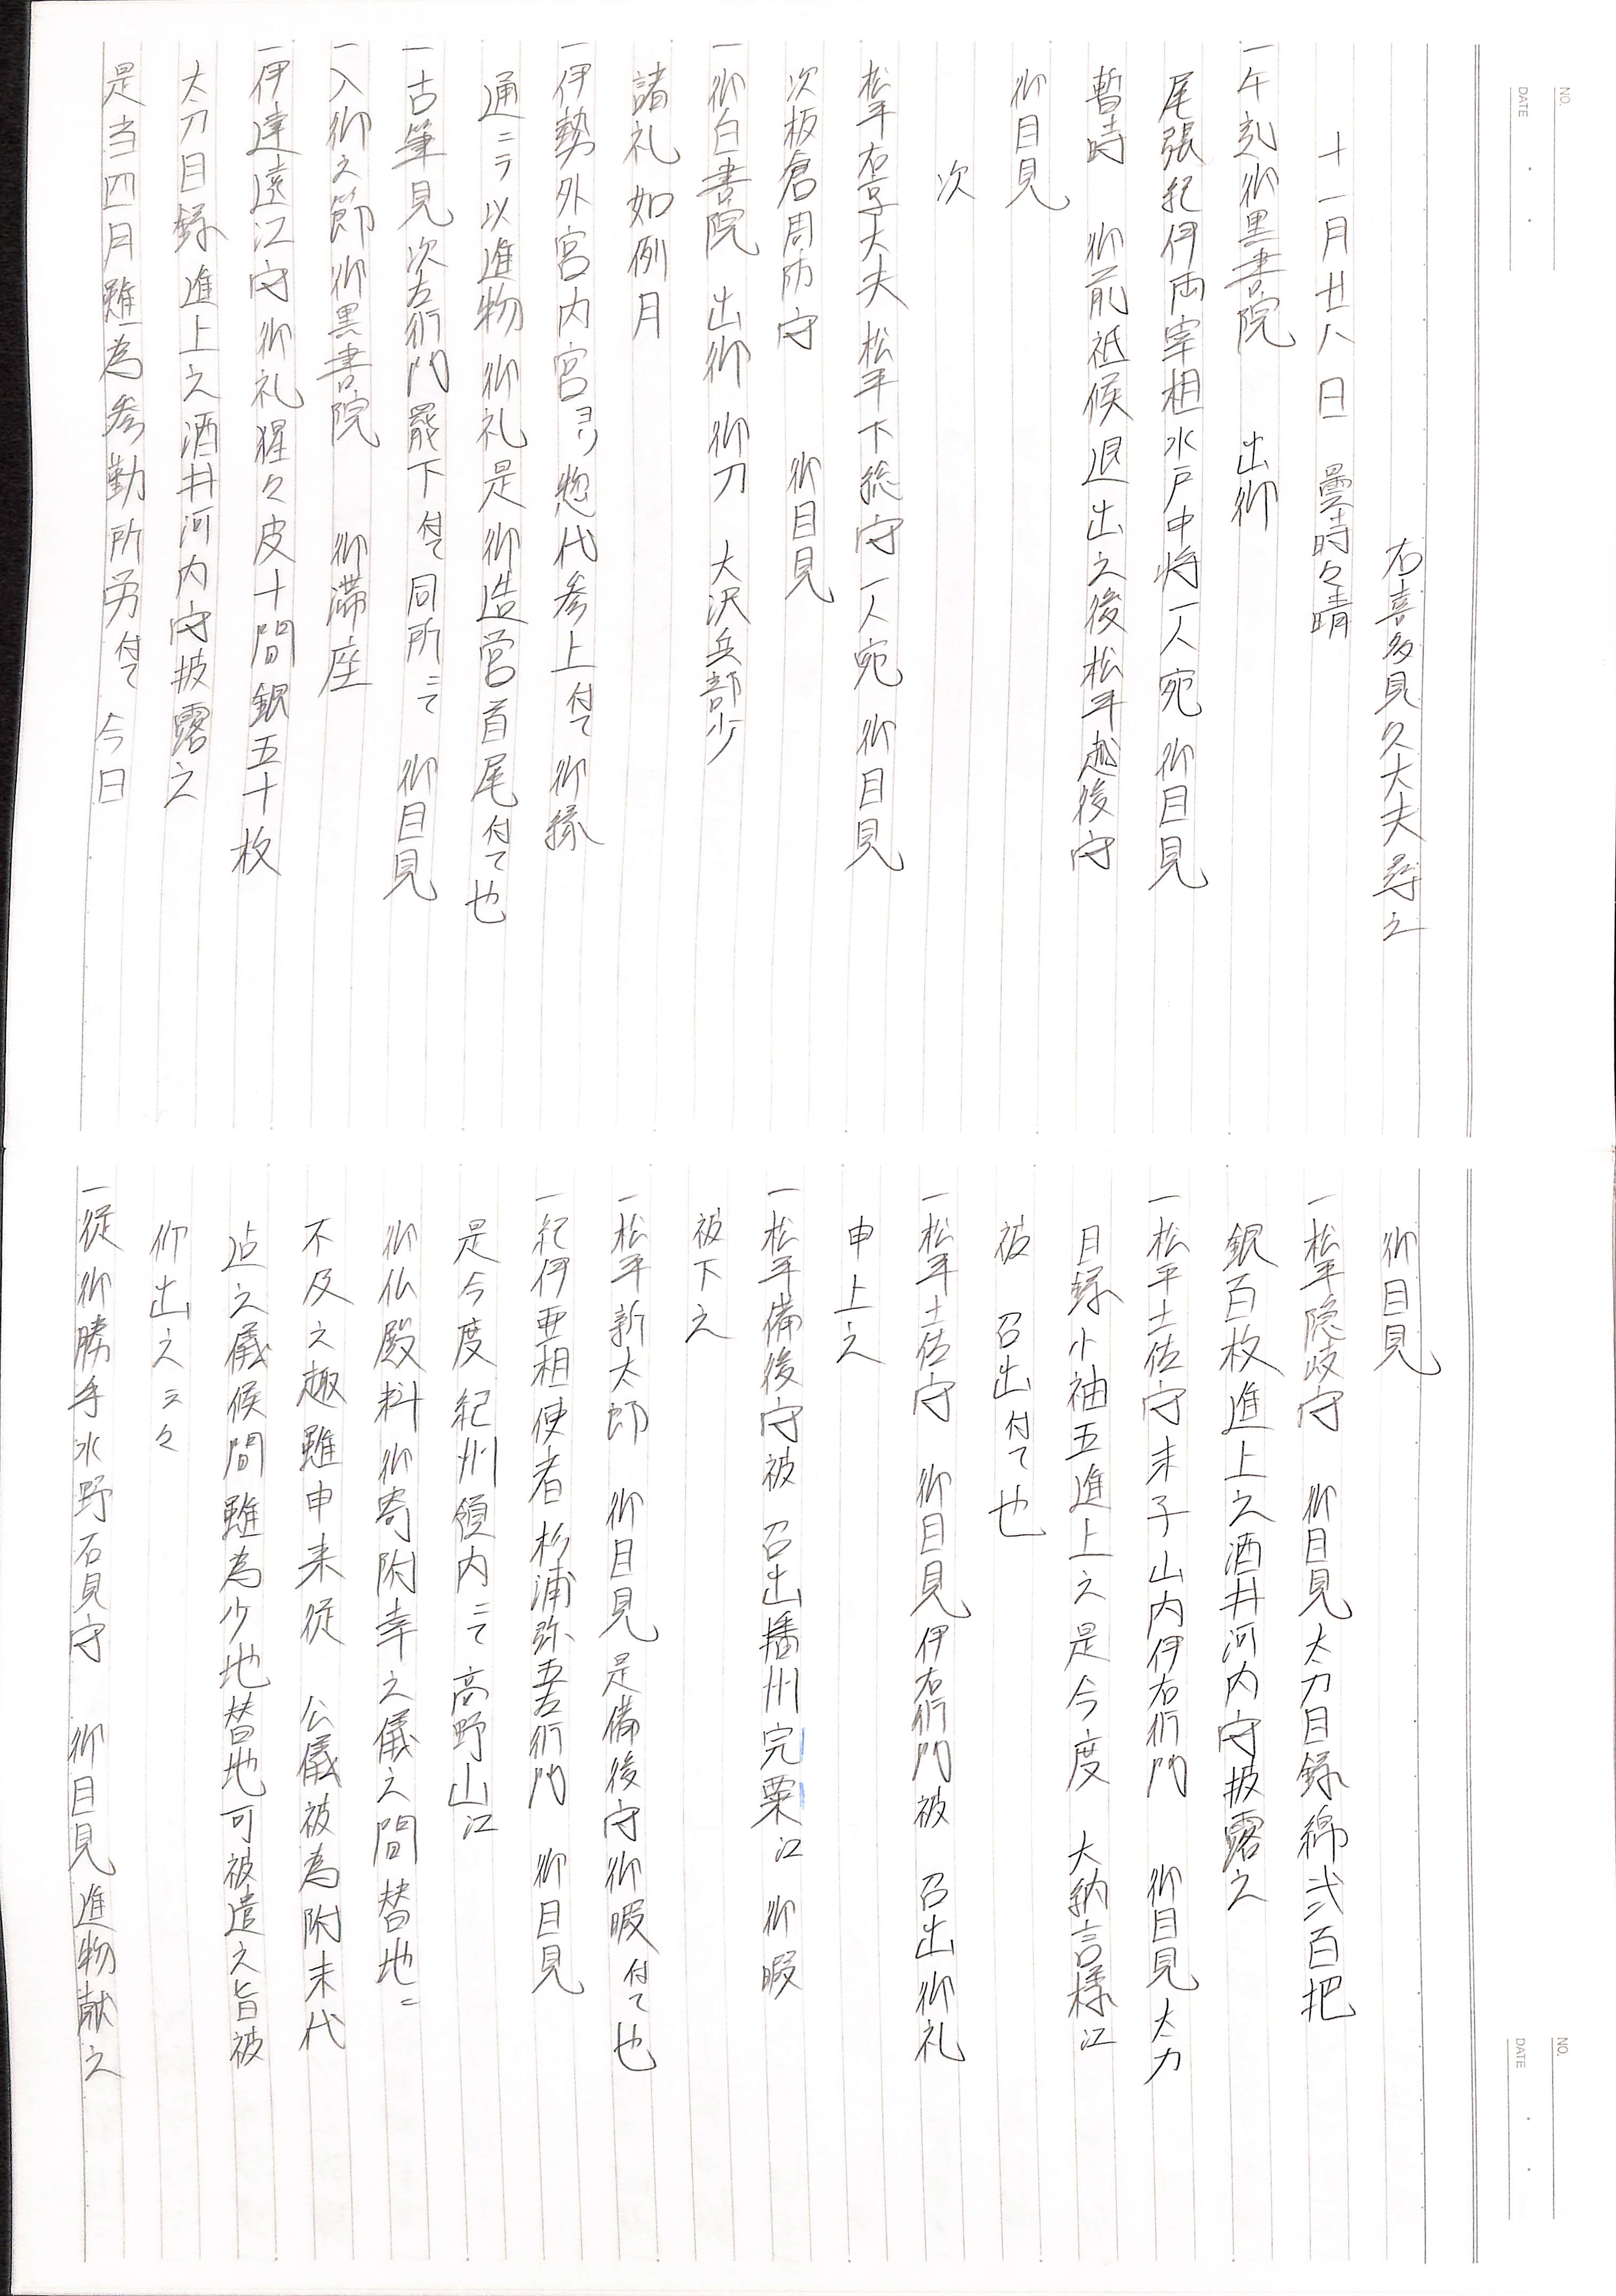 右喜多見久大夫尋之
十一月廿八日 曇時々晴
一午刻御黒書院 出御
尾張紀伊両宰相水戸中将一人宛 御目見
暫時 御前祗候退出之後松平越後守
御目見
次
松平右京大夫松平下総守一人宛 御目見
次板倉周防守 御目見
一御白書院 出御 御刀 大沢兵部少
諸礼如例月
一伊勢外宮内宮ヨリ惣代参上付て御縁
通ニ以進物御礼是御造営首尾付て也
一古筆見次左衛門罷下付て同所ニて 御目見
一入御之節御黒書院 御滞座
一伊達遠江守御礼猩々皮十間銀五十枚
太刀目録進上之酒井河内守披露之
是当四月雖為参勤所労付て今日
御目見
一松平隠岐守 御目見太刀目録綿弐百把
銀百枚進上之酒井河内守披露之
一松平土佐守末子山内伊右衛門 御目見太刀
目録小袖五進上之是今度 大納言様江
被 召出付て也
一松平土佐守 御目見伊右衛門被 召出御礼
申上之
一松平備後守被 召出播州完粟江 御暇
被下之
一松平新太郎 御目見是備後守御暇付て也
一紀伊亜相使者杉浦弥五左衛門 御目見
是今度紀州領内ニて高野山江
御仏殿料御寄附幸之儀之間替地ニ
不及之趣雖申来従 公儀被為附末代
迠之儀候間雖為少地替地可被遣之旨被
仰出之云々
一従御勝手水野石見守 御目見進物献之